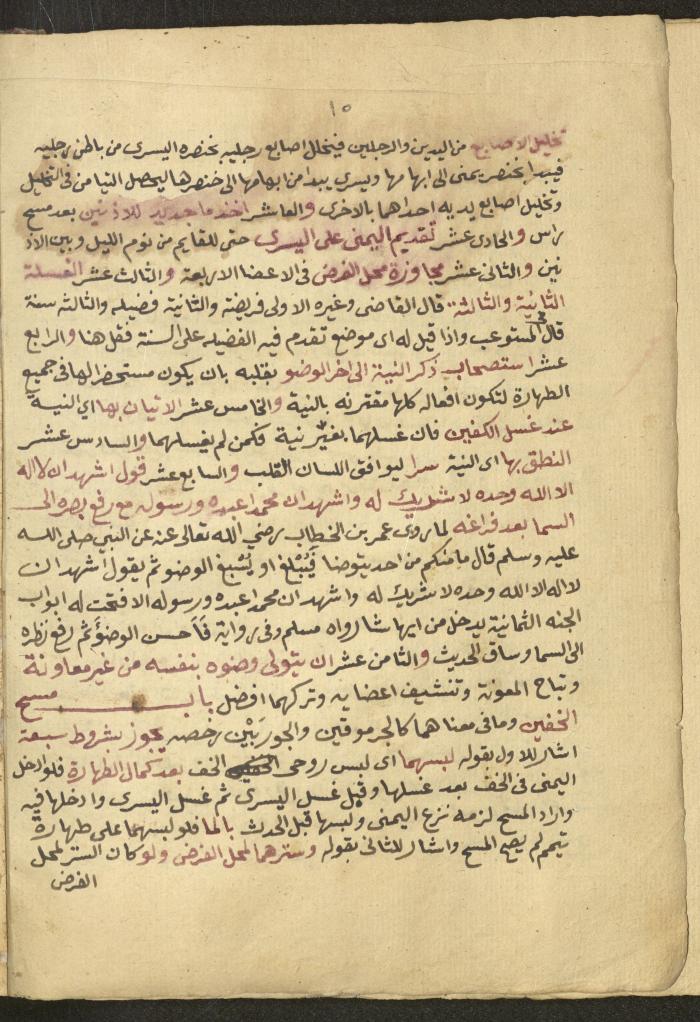 ١٥
تخليل الاصابع من اليدين والرجلين فيخلل اصابع رجليه بخنصره اليسرى من باطن رجليه
فيبدا بخنصر يمنى الى ابهامها ويسرى يبدا من ابهامها الى خنصرها ليحصل التيامن في التخليل
وتخليل اصابع يديه احداهما بالاخرى والعاشر اخذ ما جديد للاذنين بعد مسح
راس والحادى عشر تقديم اليمنى على اليسرى حتى للقايم من نوم الليل وبين الاذ
نين والثانى عشر مجاوزة محل الفرض في الاعضا الاربعة والثالث عشر الغسلة
الثانية والثالثة قال القاضى وغيره الاولى فريضة والثانية فضيله والثالثه سنة
قال في المستوعب واذا قيل له اى موضع تقدم فيه الفضيله على السنة فقل هنا والرابع
عشر استصحاب ذكر النية الى اخر الوضو بقلبه بان يكون مستحضرا لها في جميع
الطهارة لتكون افعاله كلها مقترنه بالنية والخامس عشر الاتيان بها اي النية
عند غسل الكفين فان غسلهما بغير نية فكمن لم يغسلهما والسادس عشر
النطق بها اى النية سرا ليوافق اللسان القلب والسابع عشر قول اشهد ان لا اله
الا الله وحده لا شريك له واشهد ان محمدا عبده ورسوله مع رفع بصره الى
السما بعد فراغه لما روى عمر بن الخطاب رضي الله تعالى عنه عن النبي صلى الله
عليه وسلم قال ما منكم من احد يتوضا فيبلغ او يسبغ الوضو ثم يقول اشهد ان
لا اله الا الله وحده لا شريك له واشهد ان محمدا عبده ورسوله الا فتحت له ابواب
الجنه الثمانية يدخل من ايها شا رواه مسلم وفي رواية فاحسن الوضؤ ثم رفع نظره
الى السما وساق الحديث والثامن عشر ان يتولى وضوه بنفسه من غير معاونة
وتباح المعونة وتنشيف اعضايه وتركهما افضل باب مسح
الخفين وما في معناهما كالجرموقين والجوربين رخصه يجوز بشروط سبعة
اشار للاول بقوله لبسهما اى لبس زوجى الخف بعد كمال الطهارة فلو ادخل
اليمنى في الخف بعد غسلها وقبل غسل اليسرى ثم غسل اليسرى وادخلها فيه
واراد المسح لزمه نزع اليمنى ولبسها قبل الحدث بالما فلو لبسهما على طهارة
تيمم لم يصح المسح واشار للثانى بقوله وسترهما لمحل الفرض ولو كان الستر لمحل
الفرض